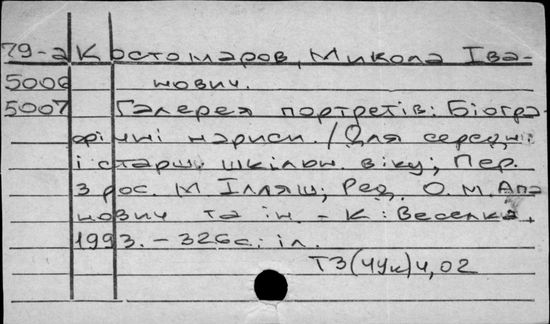 79-а Костомаров, Микола Іва-
5006 нович.
5007 Галерея портретів: Біогра-
фічні нариси. / Для середн.
і старш. шкільн. віку; Пер.
з рос. М Ілляш; Ред. О. М. Апа
нович та ін. - К.: Веселка,
1993. - 326с.: іл.
Т3(4Ук)4,02